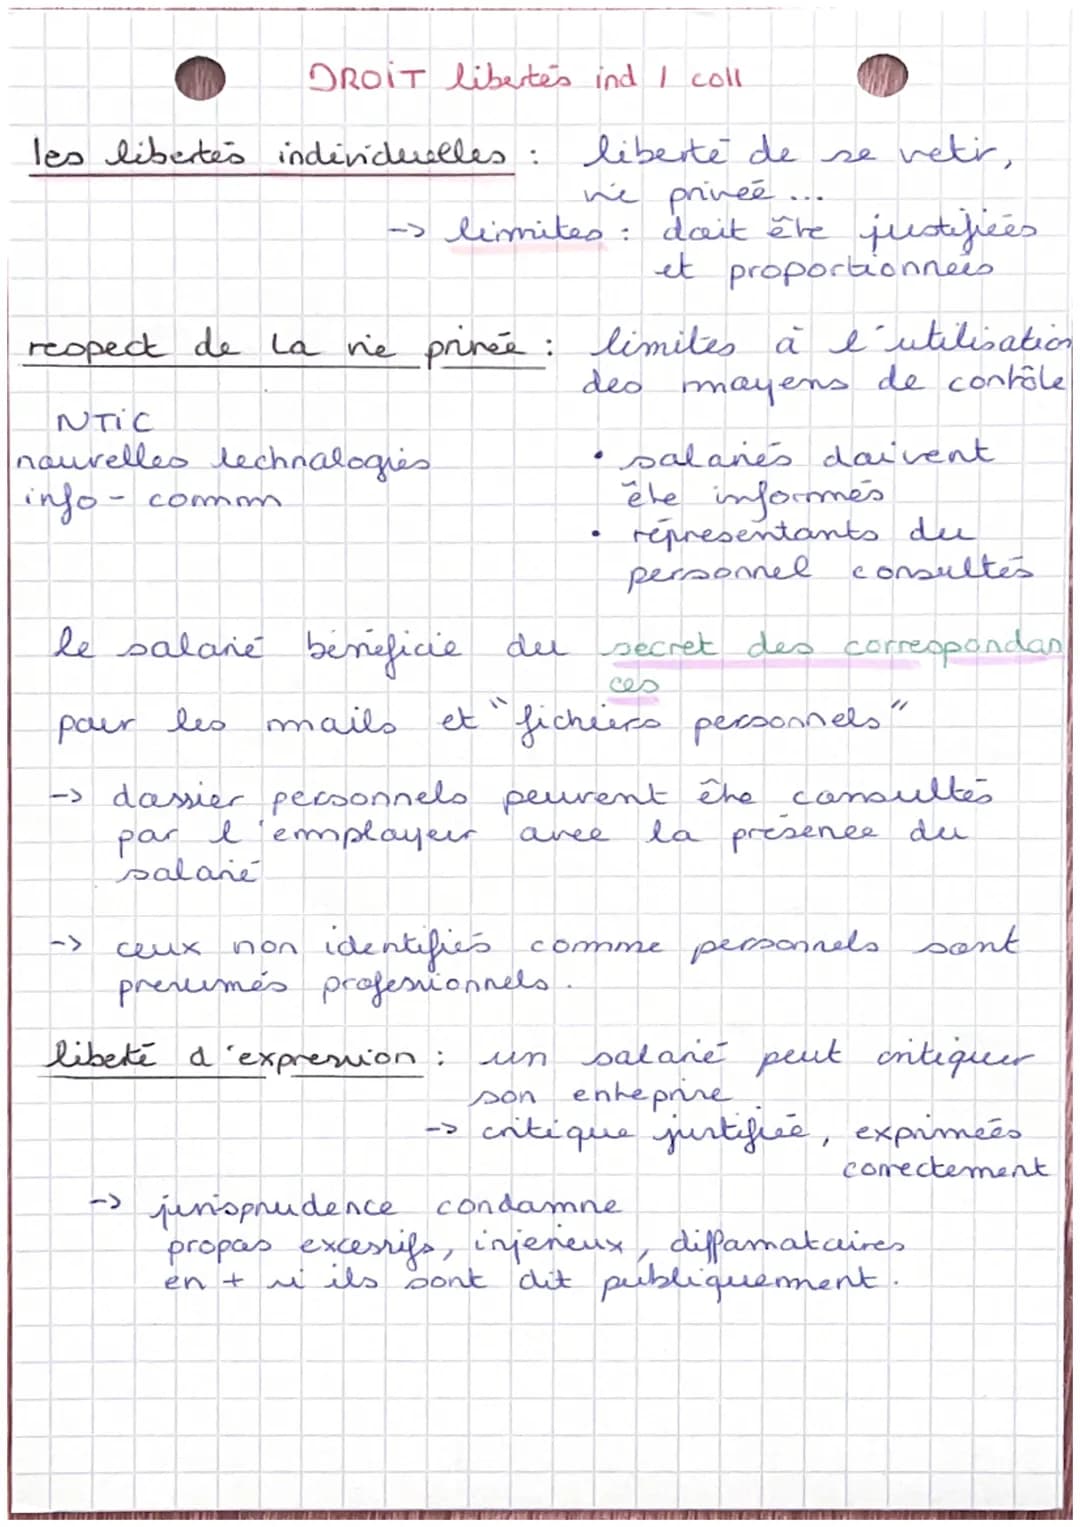 DROIT libertés ind / coll
les libertés individuelles : liberté de se vetir,
vie privée ...
-> limites : doit être justifiées
et proportionnées
respect de la vie privée : limites à l'utilisation
des moyens de contrôle
NTIC
nouvelles technologies
info - comm
• salariés doivent
être informés
• réprésentants du
personnel consultés
le salarié bénéficie du secret des correspondan
ces
pour les mails et "fichiers personnels"
-> dossier personnels peuvent être consultés
par l'employeur avec la présence du
salarié
-> ceux non identifiés comme personnels sont
presumés professionnels.
liberté d'expression : un salarié peut critiquer
son entreprise
-> critique justifiée, exprimées
correctement
-> jurisprudence condamne
propos excessifs, injerieux, diffamataires
en + si ils sont dit publiquement.